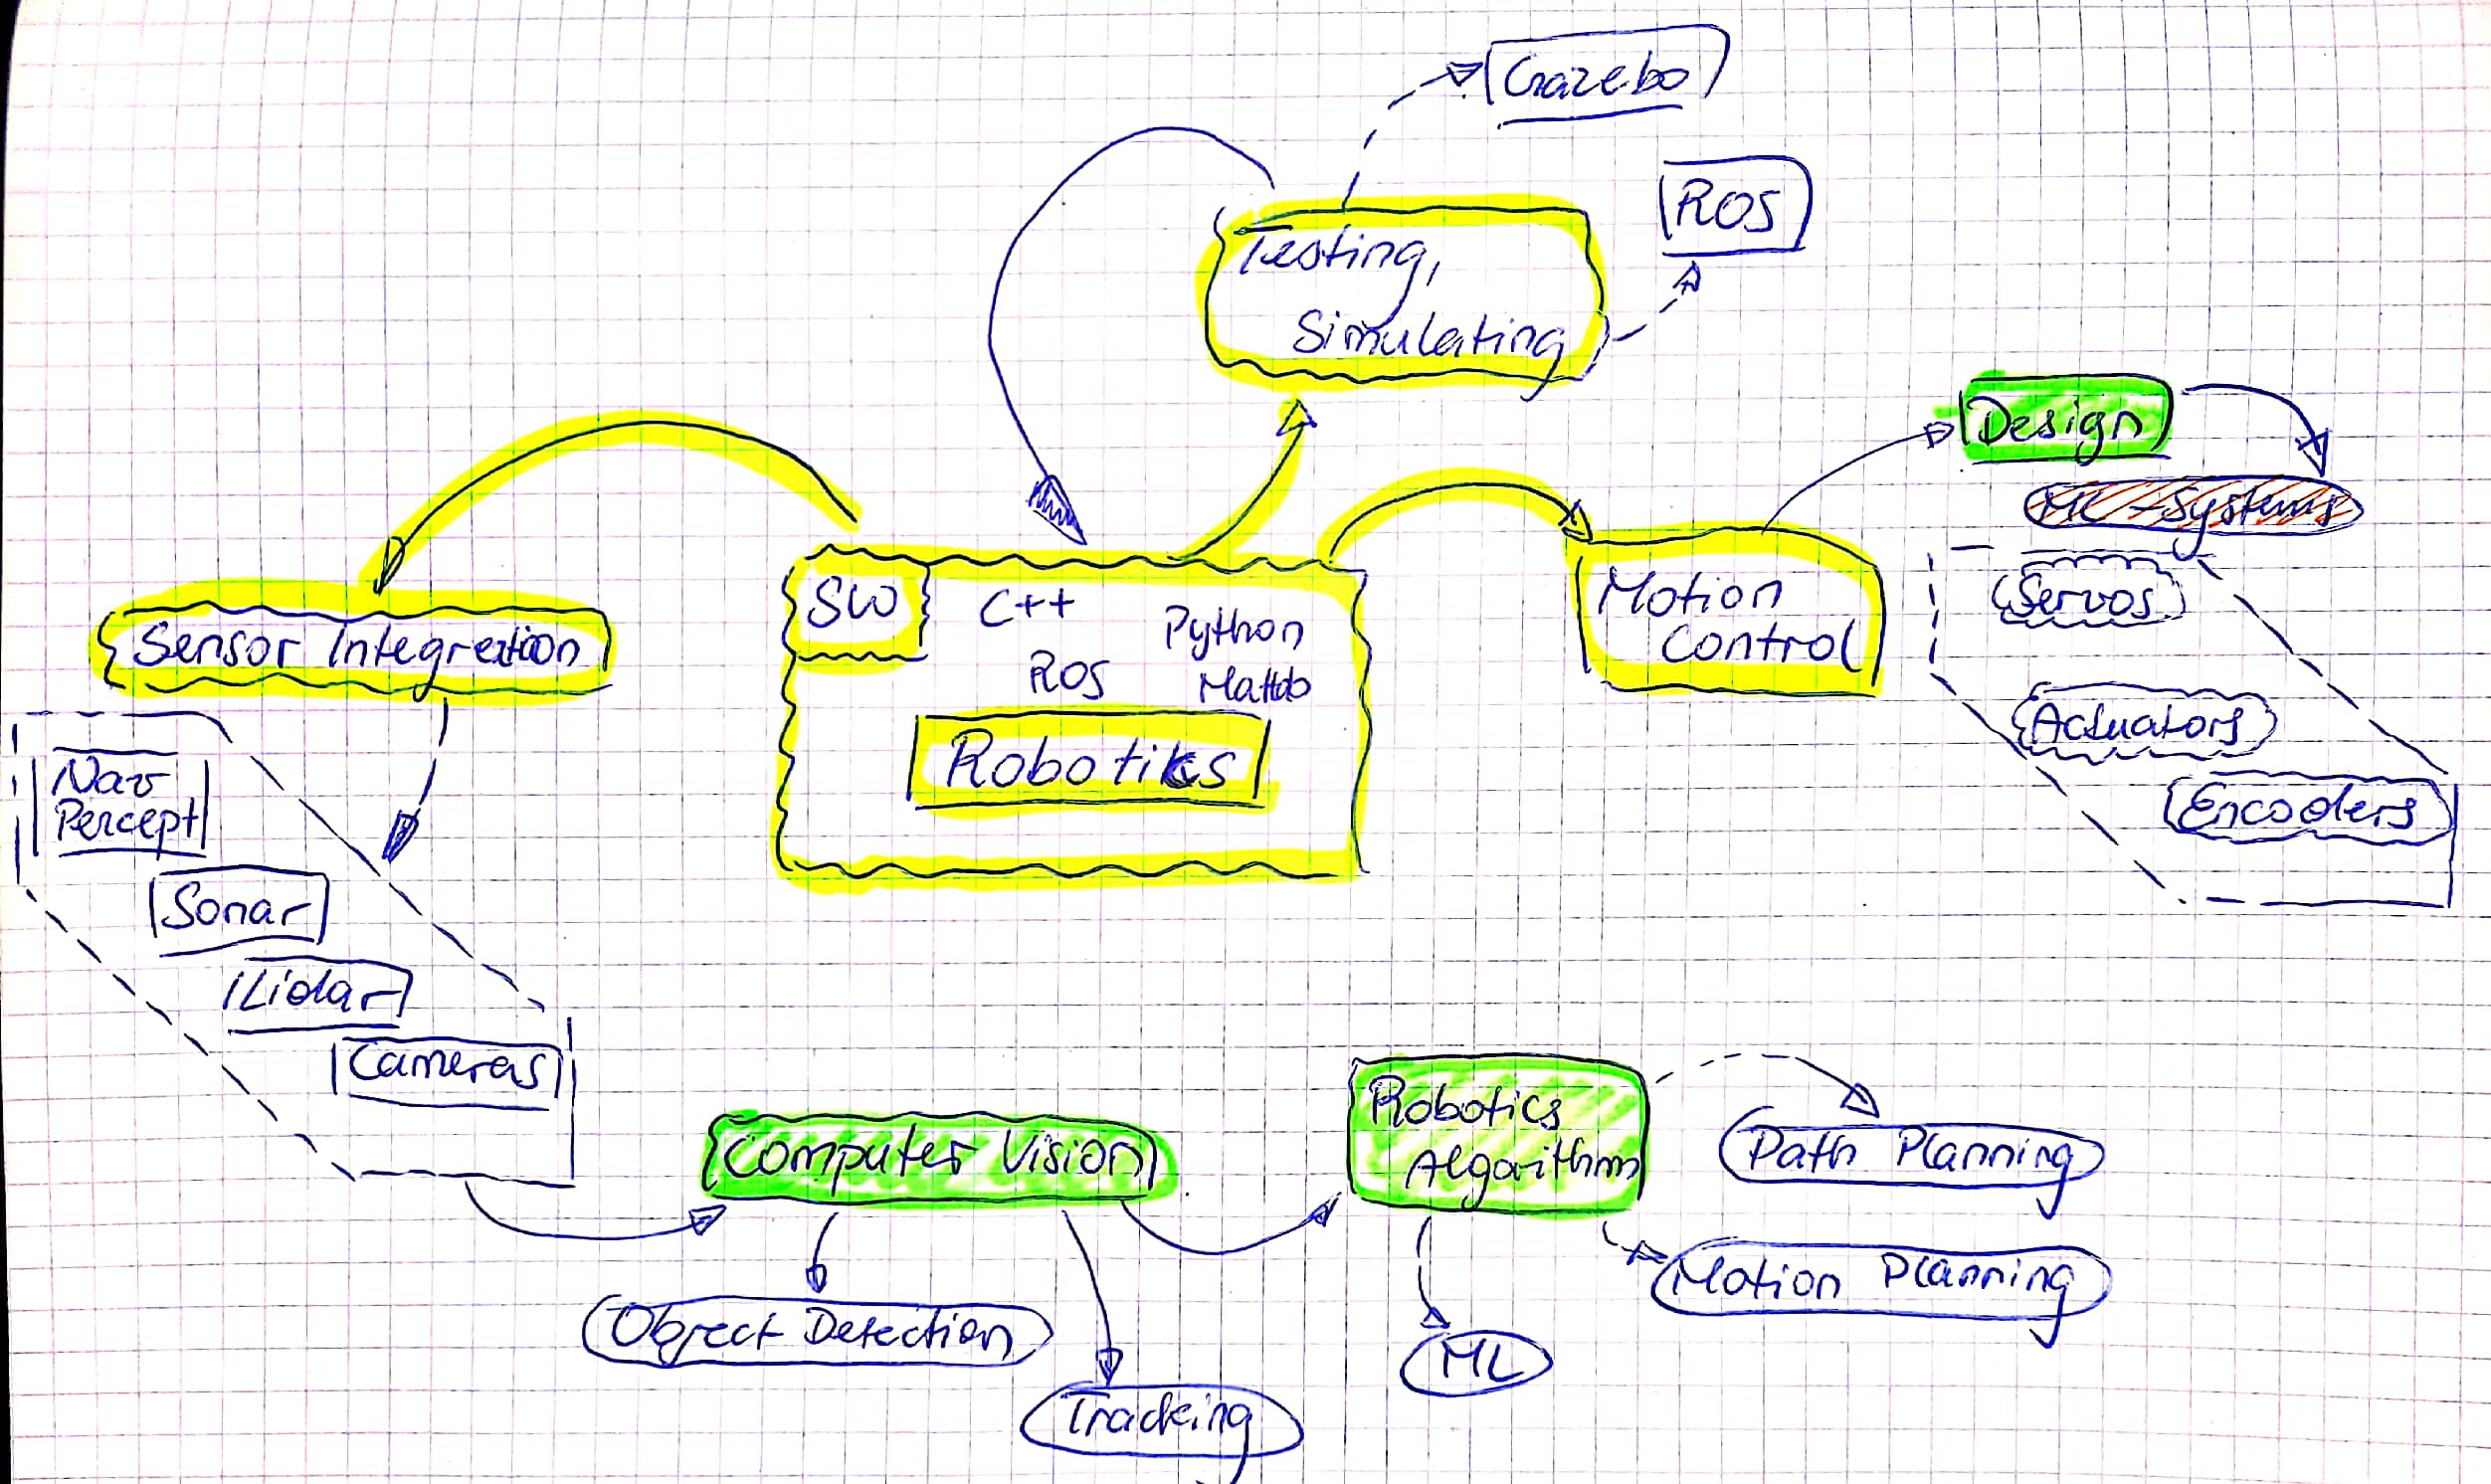 Gazebo
ROS
Testing,
Simulating
Design
MC-Systems
Servos
Actuators
Encoders
Motion
Control
SW
C++
Python
ROS
Matlab
Robotiks
Sensor Integration
Nav
Percept
Sonar
Lidar
Cameras
Computer Vision
Object Detection
Tracking
Robotics
Algorithm
Path Planning
Motion Planning
ML